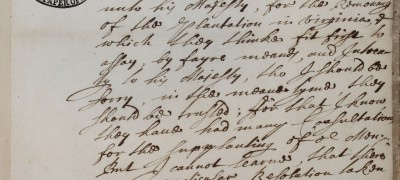 APER OF
unto his Majesty, for the Removing
of the Plantation in Virginia, &
which they thinke fit first to
assay, by fayre meanes, and Intreaty
to his Majesty, tho I should be
sorry, in the meane tyme, they
should be trusted; for that I know,
they have had many Consultations
for the Supplanting of
But I cannot learne, that there
Resolution taken